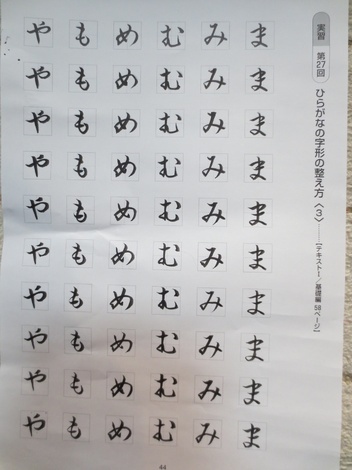 実習 第27回 ひらがなの字形の整え方〈3〉……【テキストⅠ／基礎編 56ページ】
まままままままままま
みみみみみみみみみみ
むむむむむむむむむむ
めめめめめめめめめめ
もももももももももも
やややややややややや
44